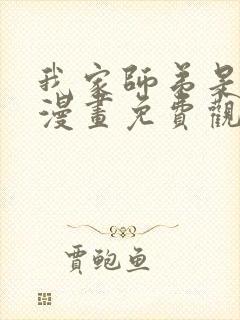 我家師弟呆
漫畫免費觀
賈鲍鱼